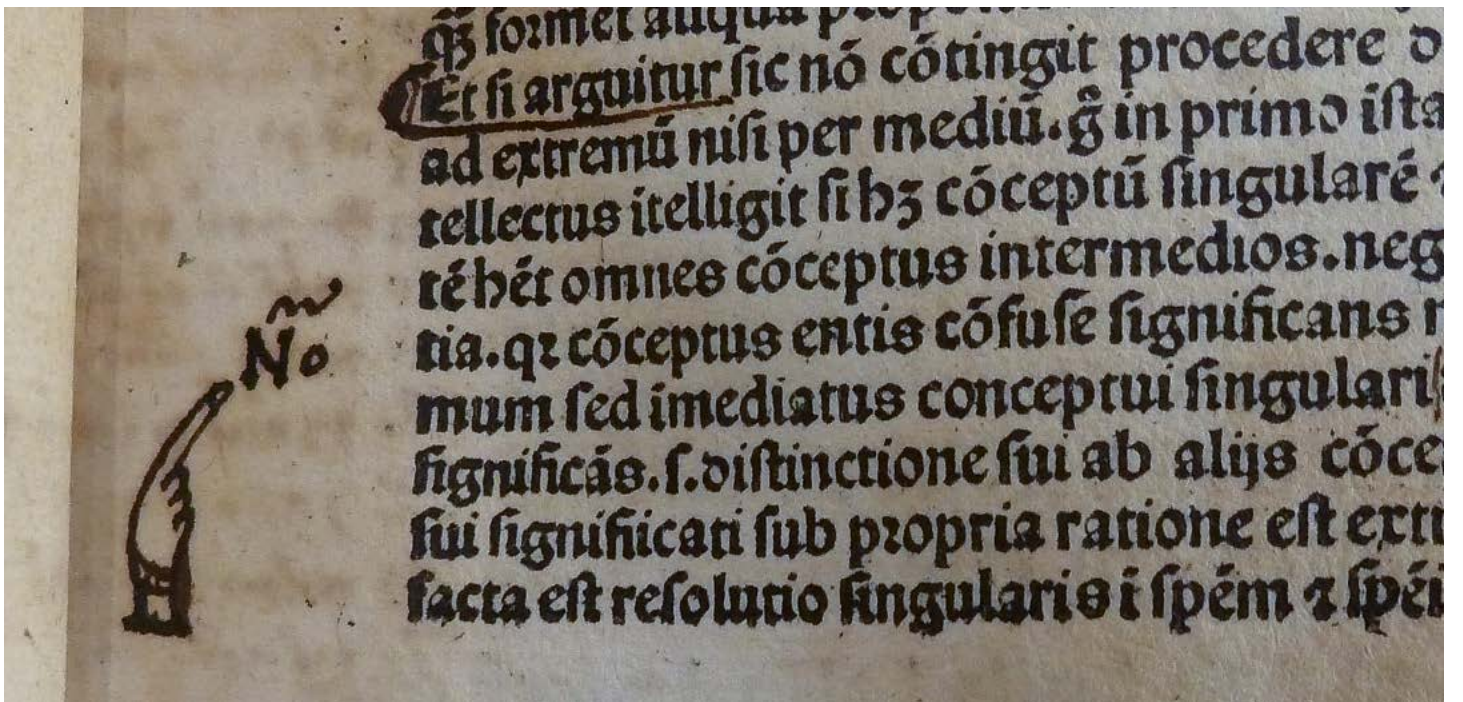 qꝫ formet aliqua
Et si arguitur sic nō cōtingit procedere
ad extremū nisi per mediū. g̊ in primo ista
tellectus itelligit si hꝫ cōceptū singularē
tē hēt omnes cōceptus intermedios. neg
tia. qꝛ cōceptus entis cōfuse significans
No
mum sed imediatus conceptui singulari
significās. s. distinctione sui ab alijs cōce
sui significati sub propria ratione est
facta est resolutio singularis ī spēm ⁊ spēi